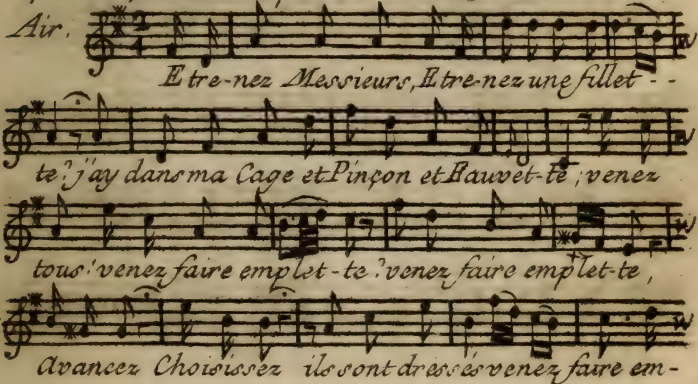 Air.
Etre-nez Messieurs, Etre-nez une fillet - -
te? j'ay dans ma Cage et Pinçon et Fauvet-te; venez
tous! venez faire emplet-te? venez faire emplet-te,
Avancez Choisissez ils sont dressés venez faire em-